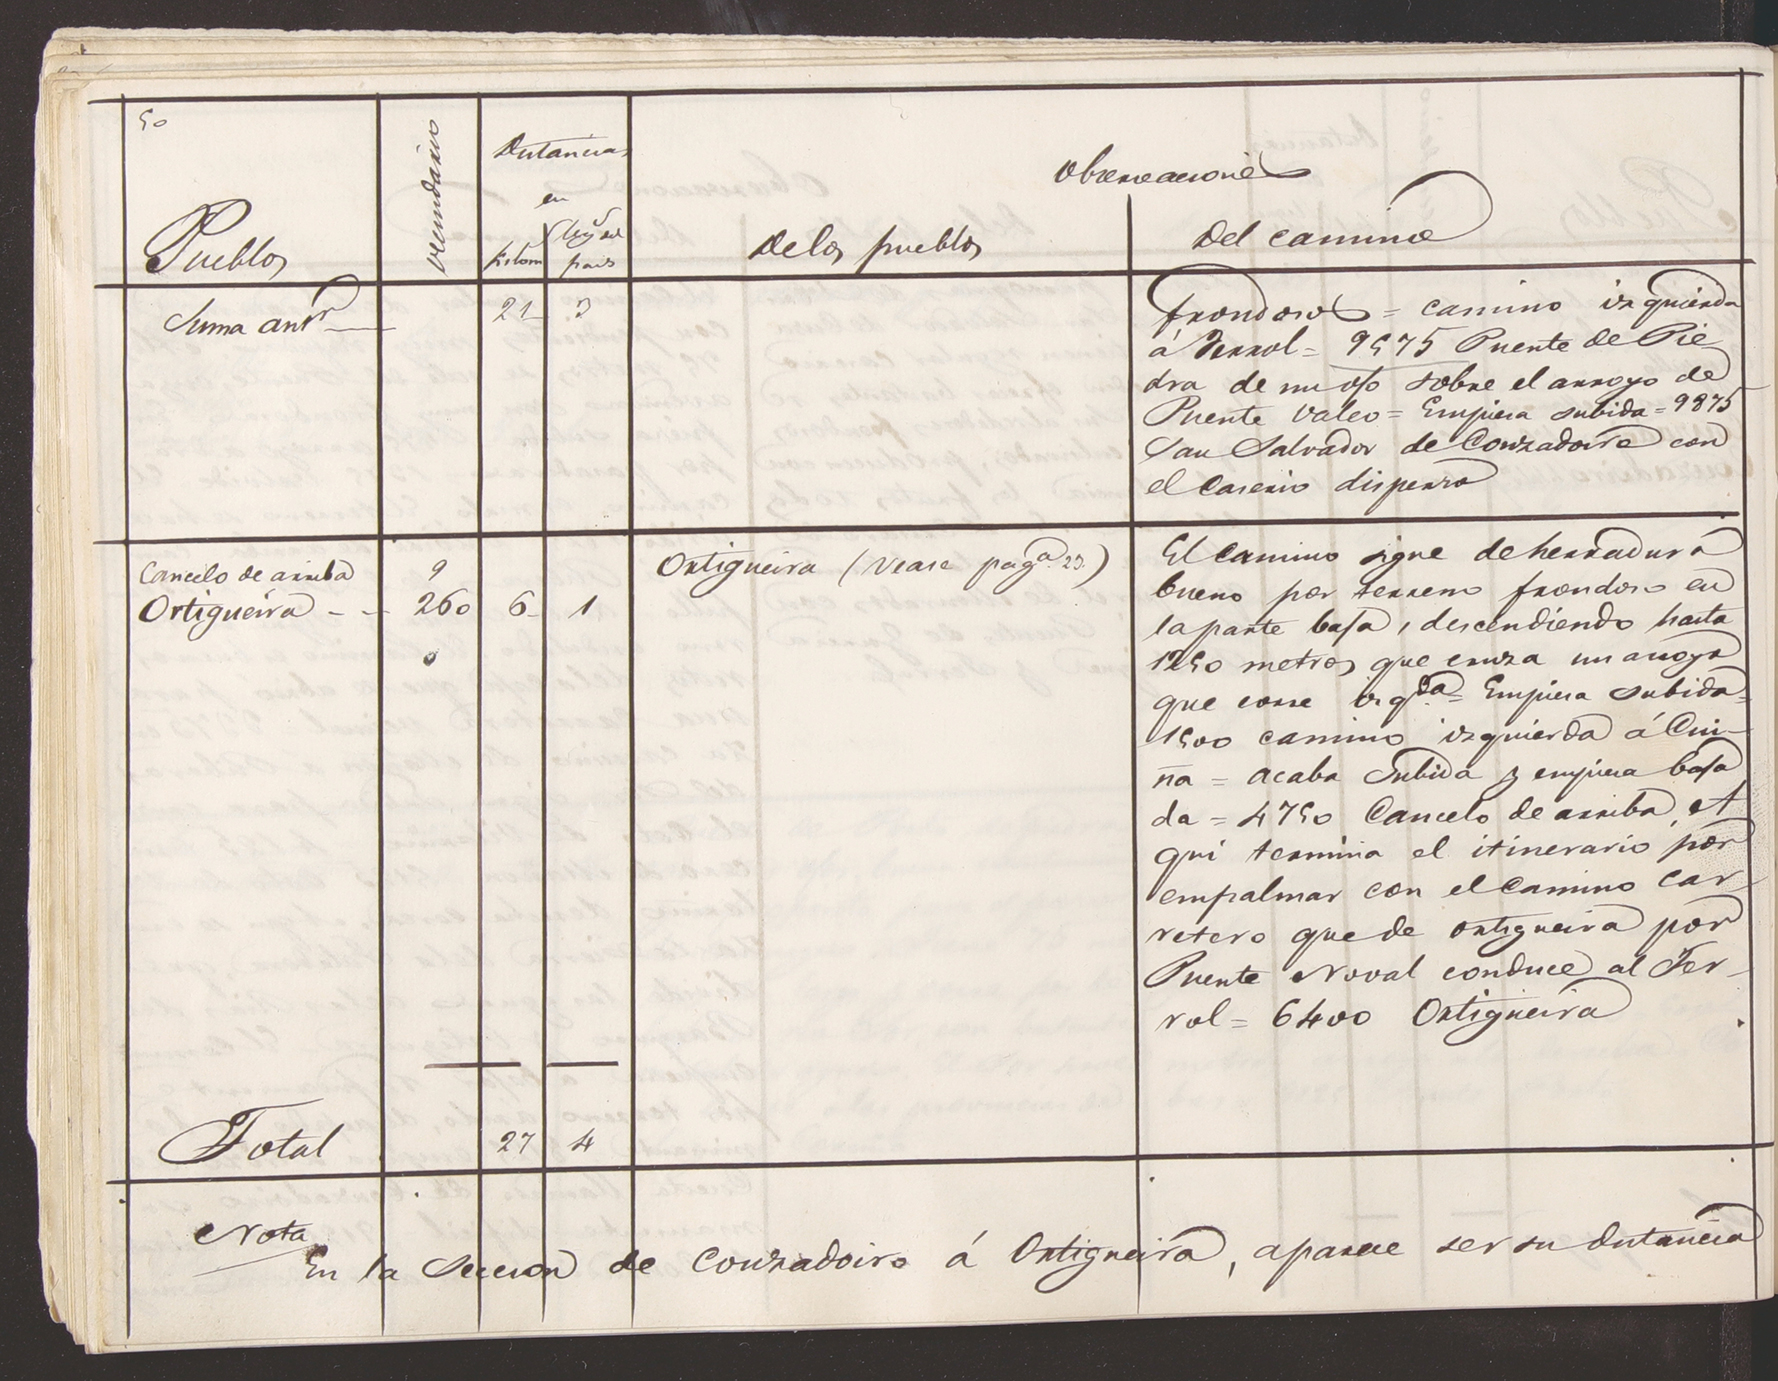 50
Pueblos
vecindario
Distancias
en
Kilom
Leg.s del
pais
Observaciones
De los pueblos
Del camino
Suma antr
21 3
frondosos = camino izquierda
á Ferrol = 9575 Puente de Pie
dra de un ojo sobre el arroyo de
Puente Valeo = Empieza subida = 9875
San Salvador de Couzadoiro con
el Caserio disperso
Cancelo de arriba 9
Ortigueira 260 6 1
0
Ortigueira (Vease pag.a 23.)
El Camino sigue de herradura
bueno por terreno frondoso en
la parte baja, descendiendo hasta
1250 metros que cruza un arroyo
que corre izq.da = Empieza subida =
1500 camino izquierda á Cui-
ña = acaba subida y empieza baja
da = 4750 Cancelo de arriba, A
qui termina el itinerario por
empalmar con el Camino Car
retero que de Ortigueira por
Puente Noval conduce al Fer-
rol = 6400 Ortigueira
Total 27 4
Nota
En la Seccion de Couzadoiro á Ortigueira, aparece ser su distancia